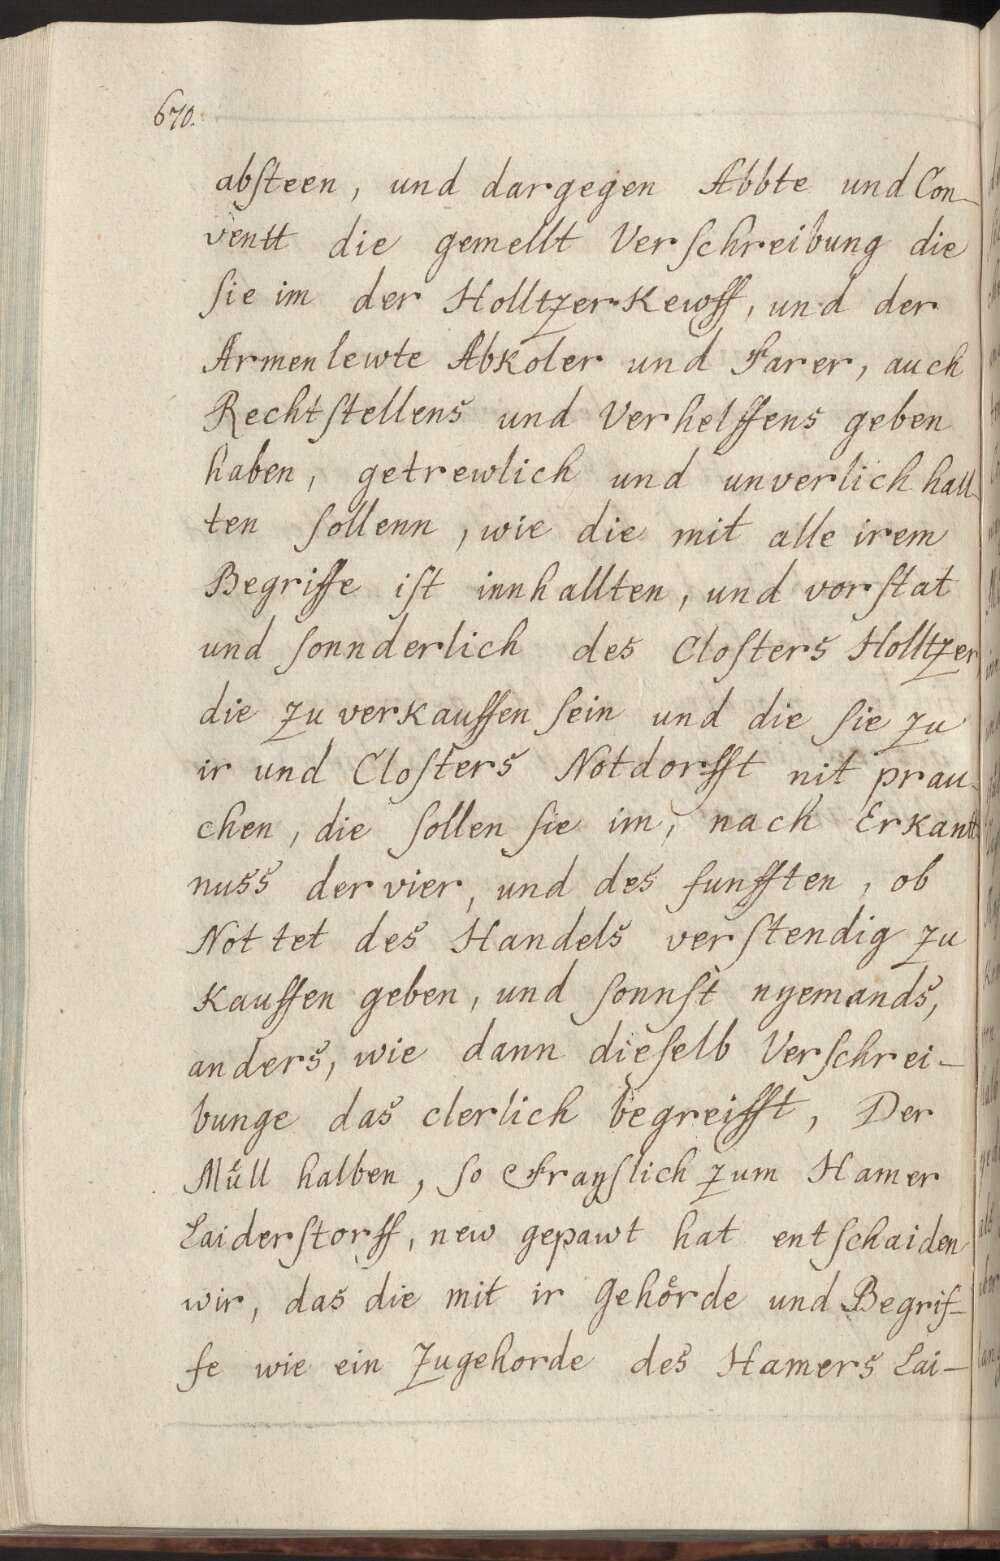 670.
absteen, und dargegen Abbte und Con-
ventt die gemellt Verschreibung die
sie im der Holltzer Kewff, und der
Armenlewte Abkoler und Farer, auch
Rechtstellens und Verhelffens geben
haben, getrewlich und unverlich hall-
ten sollenn, wie die mit alle irem
Begriffe ist innhallten, und vorstat
und sonnderlich des Closters Holltzer
die zu verkauffen sein und die sie zu
ir und Closters Notdorfft nit prau-
chen, die sollen sie im, nach Erkantt-
nuss der vier, und des funfften, ob
Not tet des Handels verstendig zu
Kauffen geben, und sonnst nyemands,
anders, wie dann dieselb Verschrei-
bunge das clerlich begreifft, Der
Müll halben, so Frayslich zum Hamer
Laiderstorff, new gepawt hat entschaiden
wir, das die mit ir Gehörde und Begrif-
fe wie ein Zugehorde des Hamers Lai-